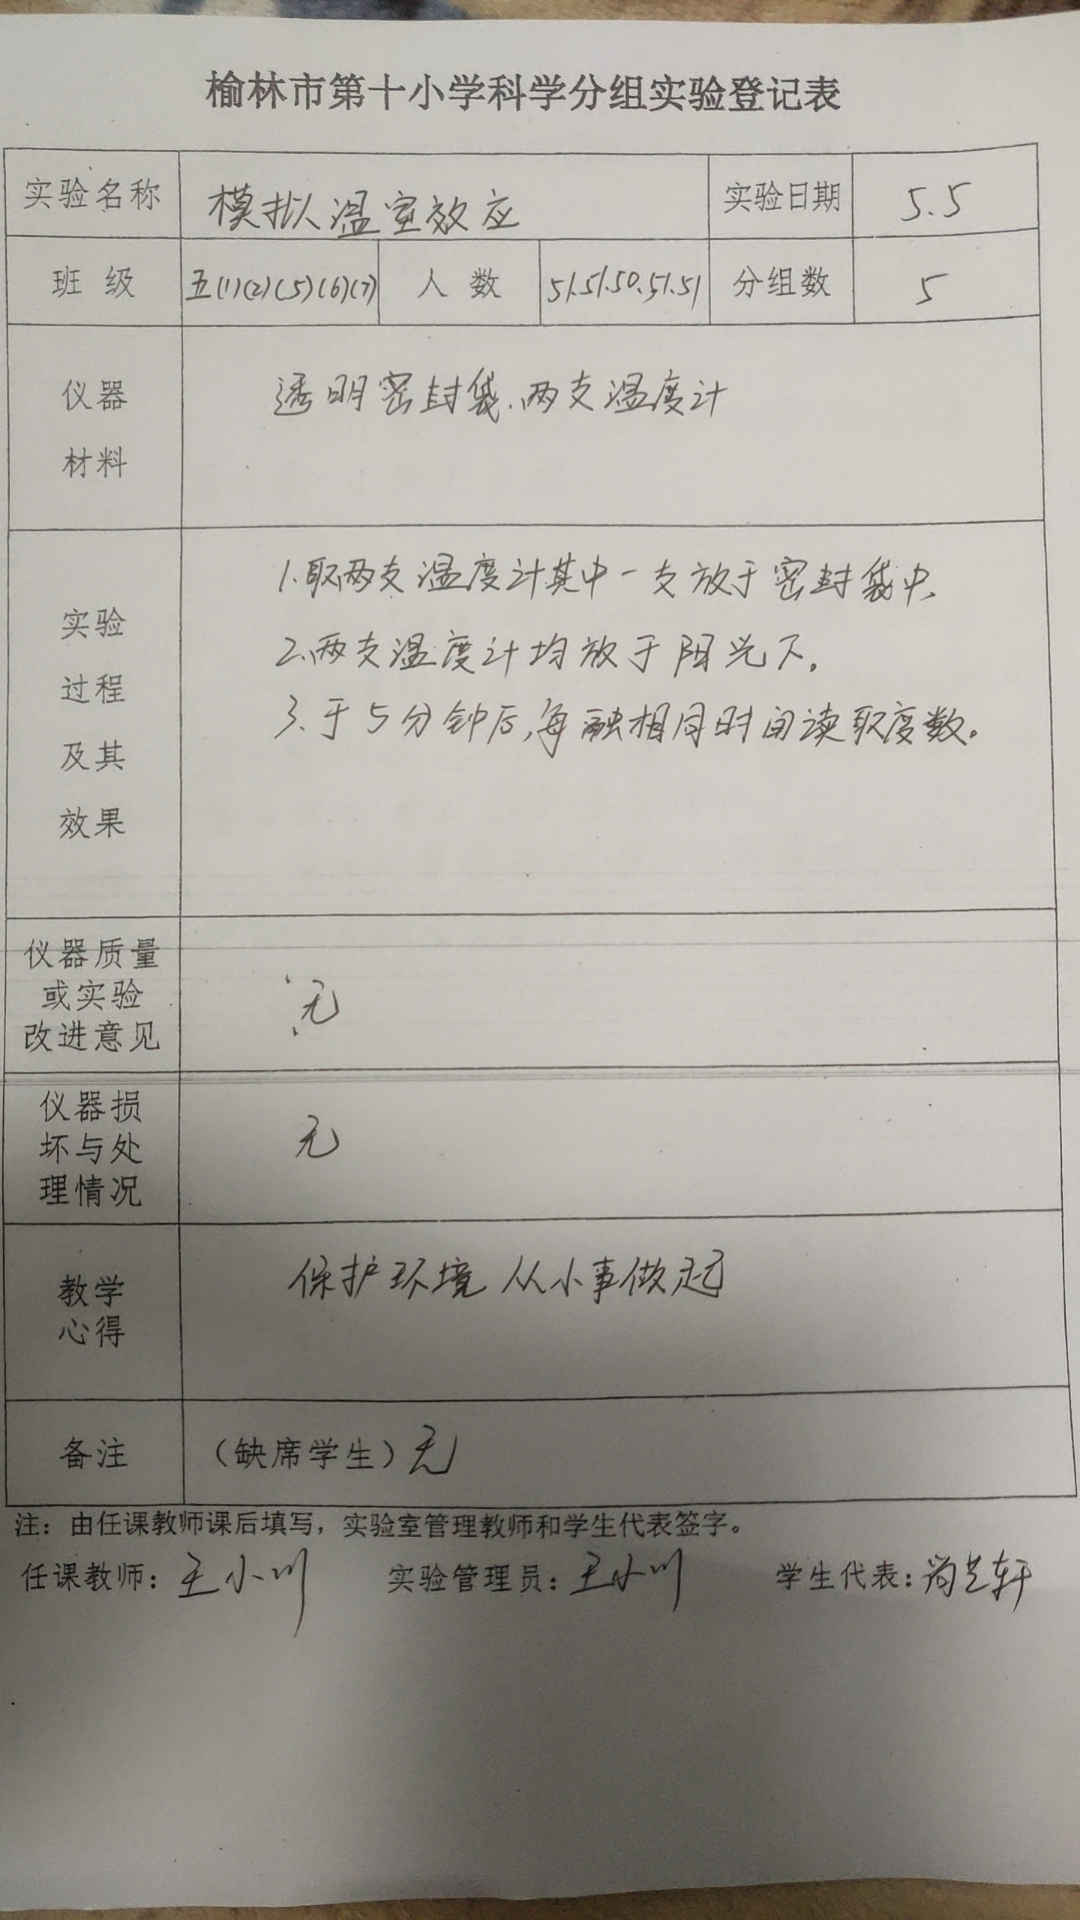 榆林市第十小学科学分组实验登记表
实验名称 模拟温室效应 实验日期 5.5
班级 五(1)(2)(5)(6)(7) 人数 51.51.50.51.51 分组数 5
仪器
材料
透明密封袋、两支温度计
实验
过程
及其
效果
1.取两支温度计其中一支放于密封袋中、
2.两支温度计均放于阳光下。
3.于5分钟后,每融相同时间读取度数。
仪器质量
或实验
改进意见
无
仪器损
坏与处
理情况
无
教学
心得
保护环境 从小事做起
备注 (缺席学生) 无
注：由任课教师课后填写，实验室管理教师和学生代表签字。
任课教师：王小川 实验管理员：王小川 学生代表：尚艺轩